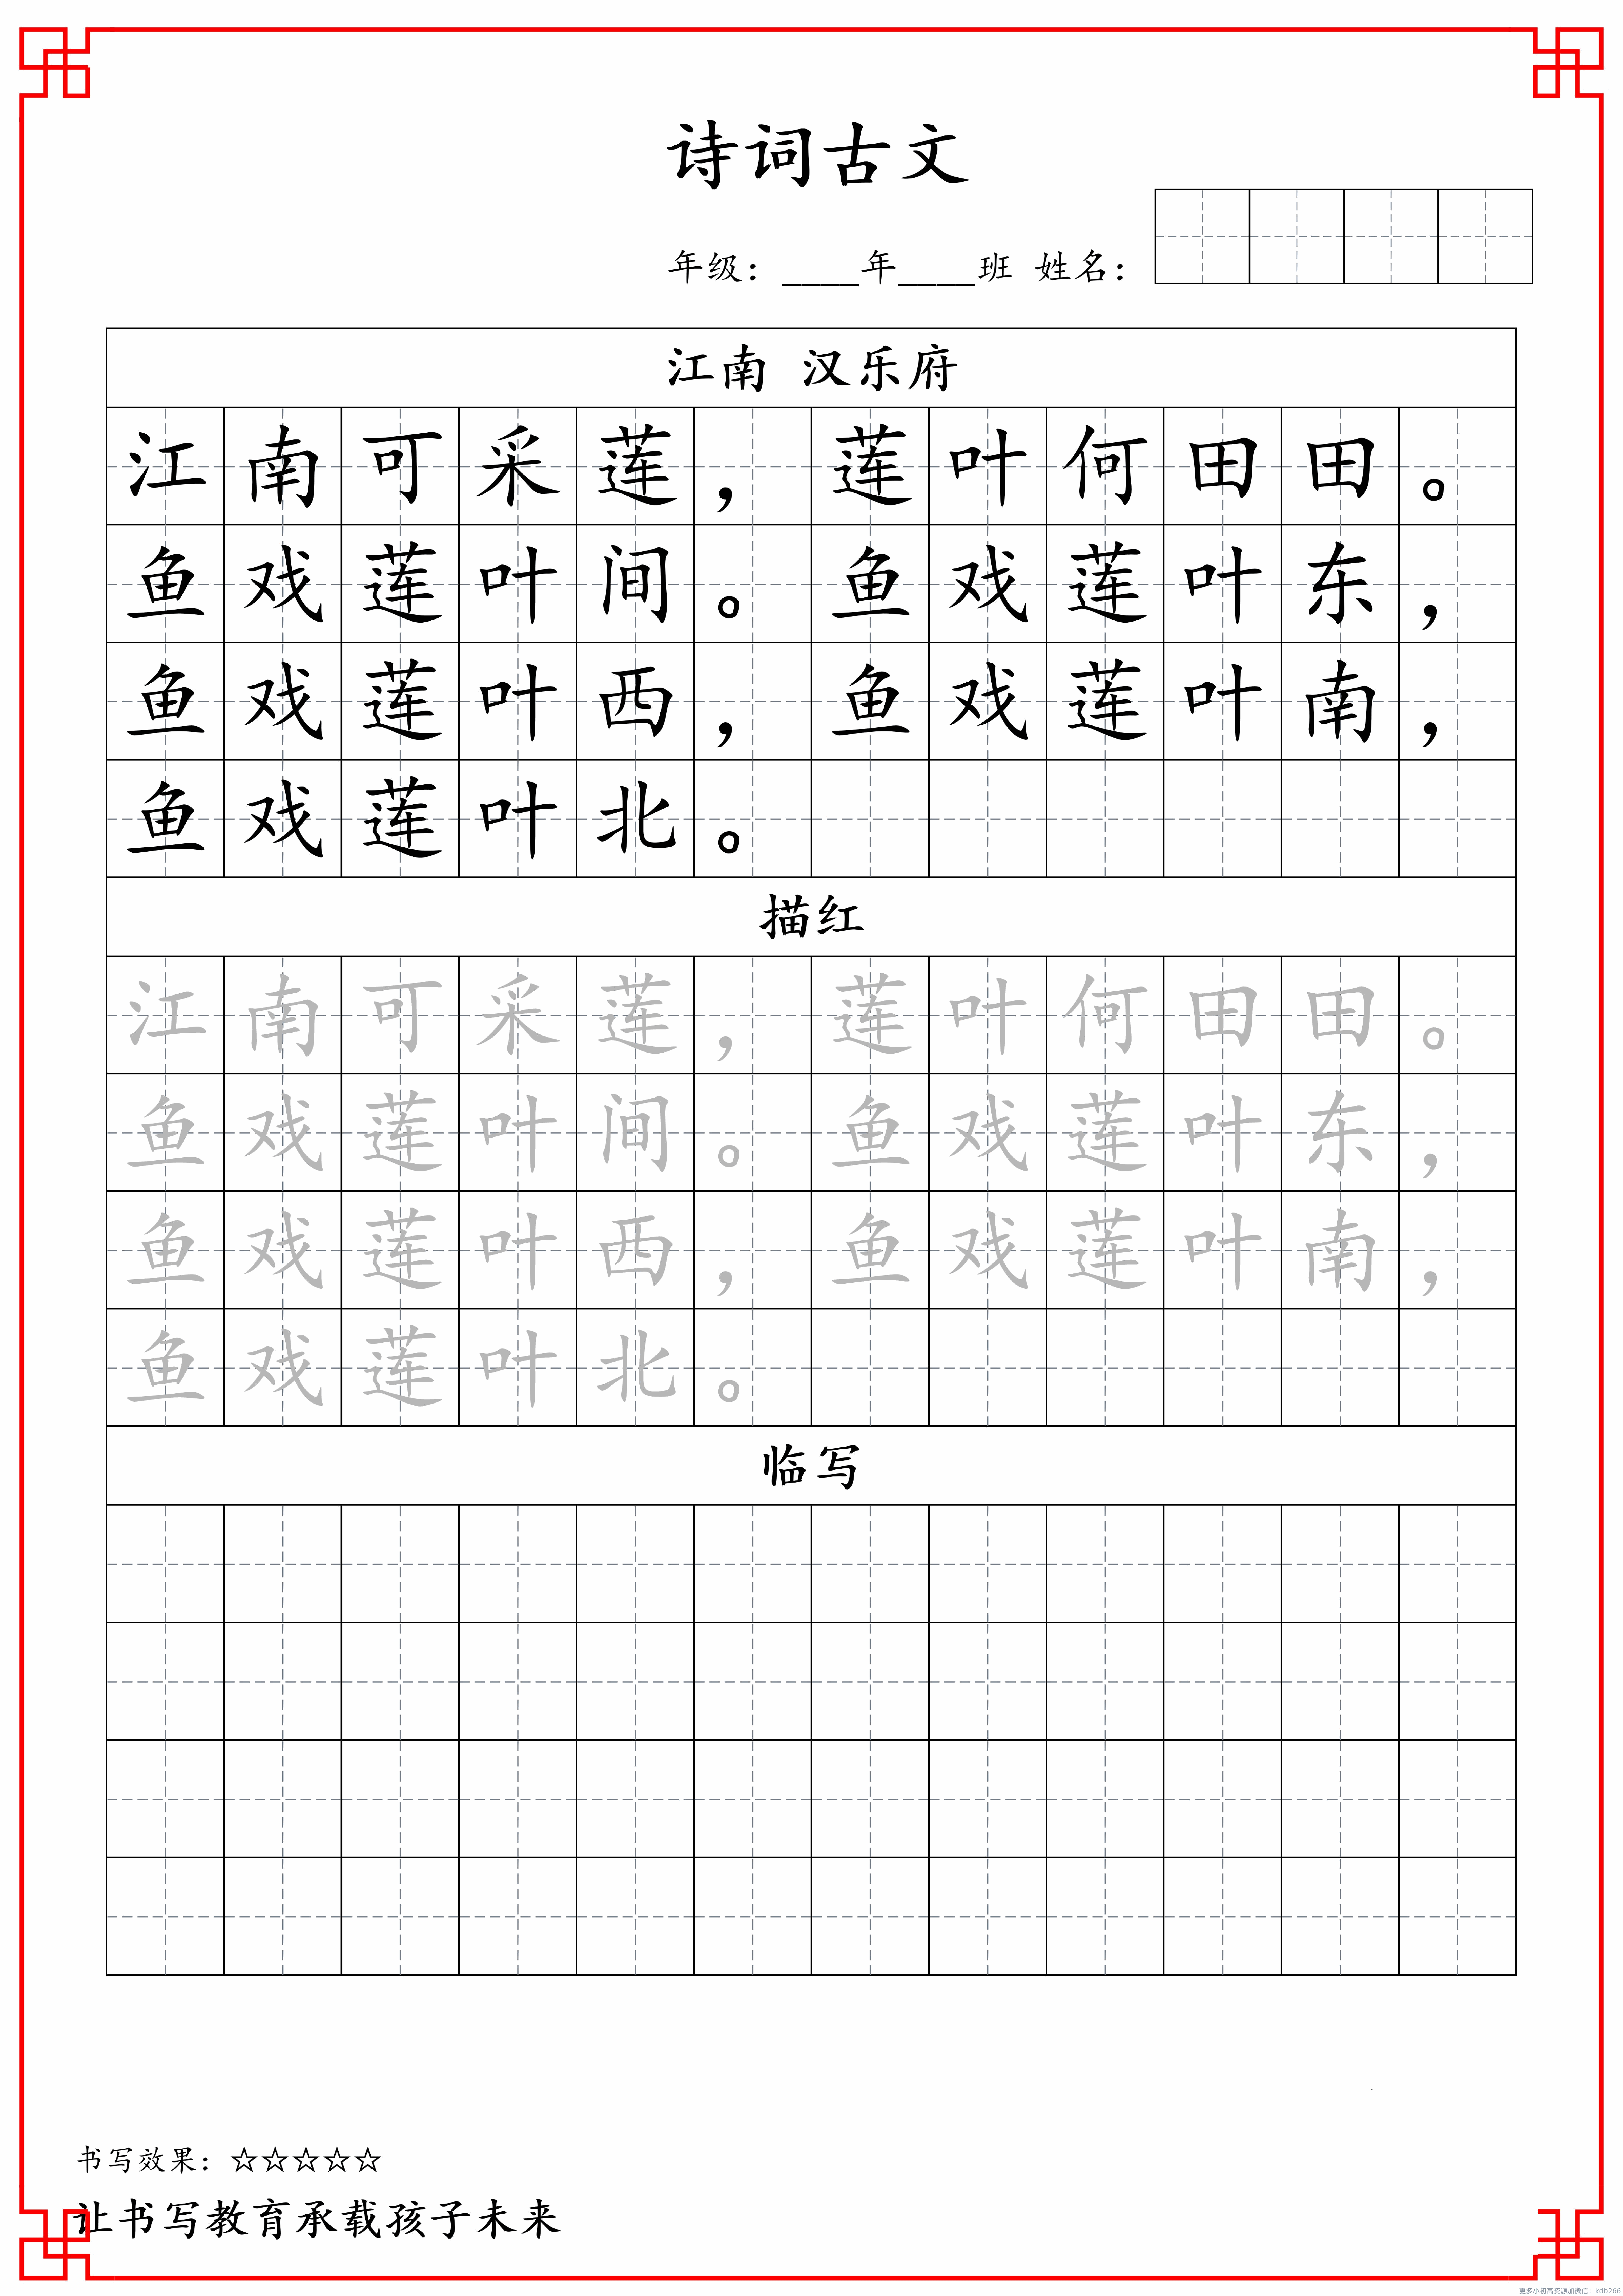 诗词古文
年级：____年____班 姓名：
江南 汉乐府
江南可采莲，莲叶何田田。
鱼戏莲叶间。鱼戏莲叶东，
鱼戏莲叶西，鱼戏莲叶南，
鱼戏莲叶北。
描红
江南可采莲，莲叶何田田。
鱼戏莲叶间。鱼戏莲叶东，
鱼戏莲叶西，鱼戏莲叶南，
鱼戏莲叶北。
临写
书写效果：☆☆☆☆☆
让书写教育承载孩子未来
更多小初高资源加微信：kdb266